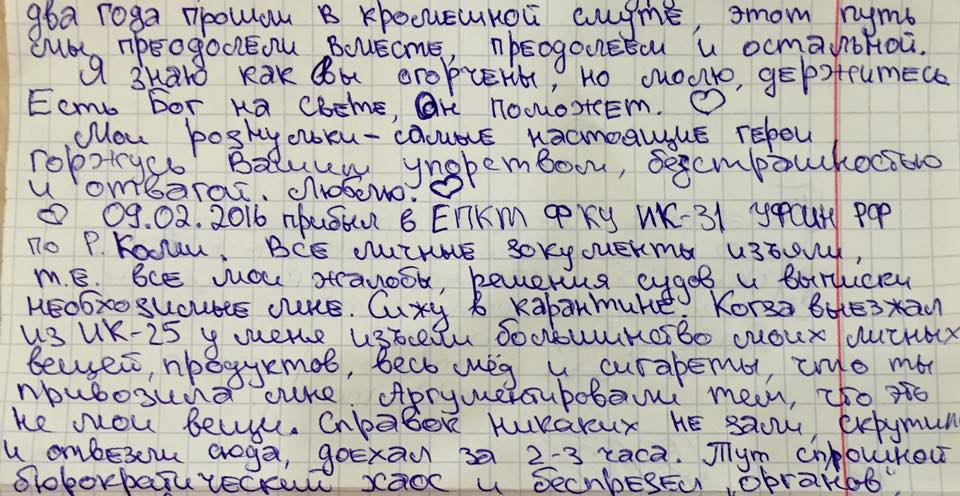 два года прошли в кромешной смуте, этот путь
мы преодолели вместе, преодолеем и остальной.
Я знаю как Вы огорчены, но молю, держитесь
Есть Бог на свете, Он поможет. ♡
Мои рознульки - самые настоящие герои
горжусь Вашим упорством, безстрашностью
и отвагой. Люблю. ♡
♡ 09.02.2016 прибыл в ЕПКТ ФКУ ИК-31 УФСИН РФ
по Р. Коми. Все личные зокументы изъяли,
т.е. все мои жалобы, решения судов и выписки
необхозимые мне. Сижу в карантине. Когза выезжал
из ИК-25 у меня изъяли большинство моих личных
вещей, продуктов, весь мёд и сигареты, что ты
привозила мне. Аргументировали тем, что это
не мои вещи. Справок никаких не зали, скрутили
и отвезли сюда, доехал за 2-3 часа. Тут сплошной
бюрократический хаос и беспрезел "органов".